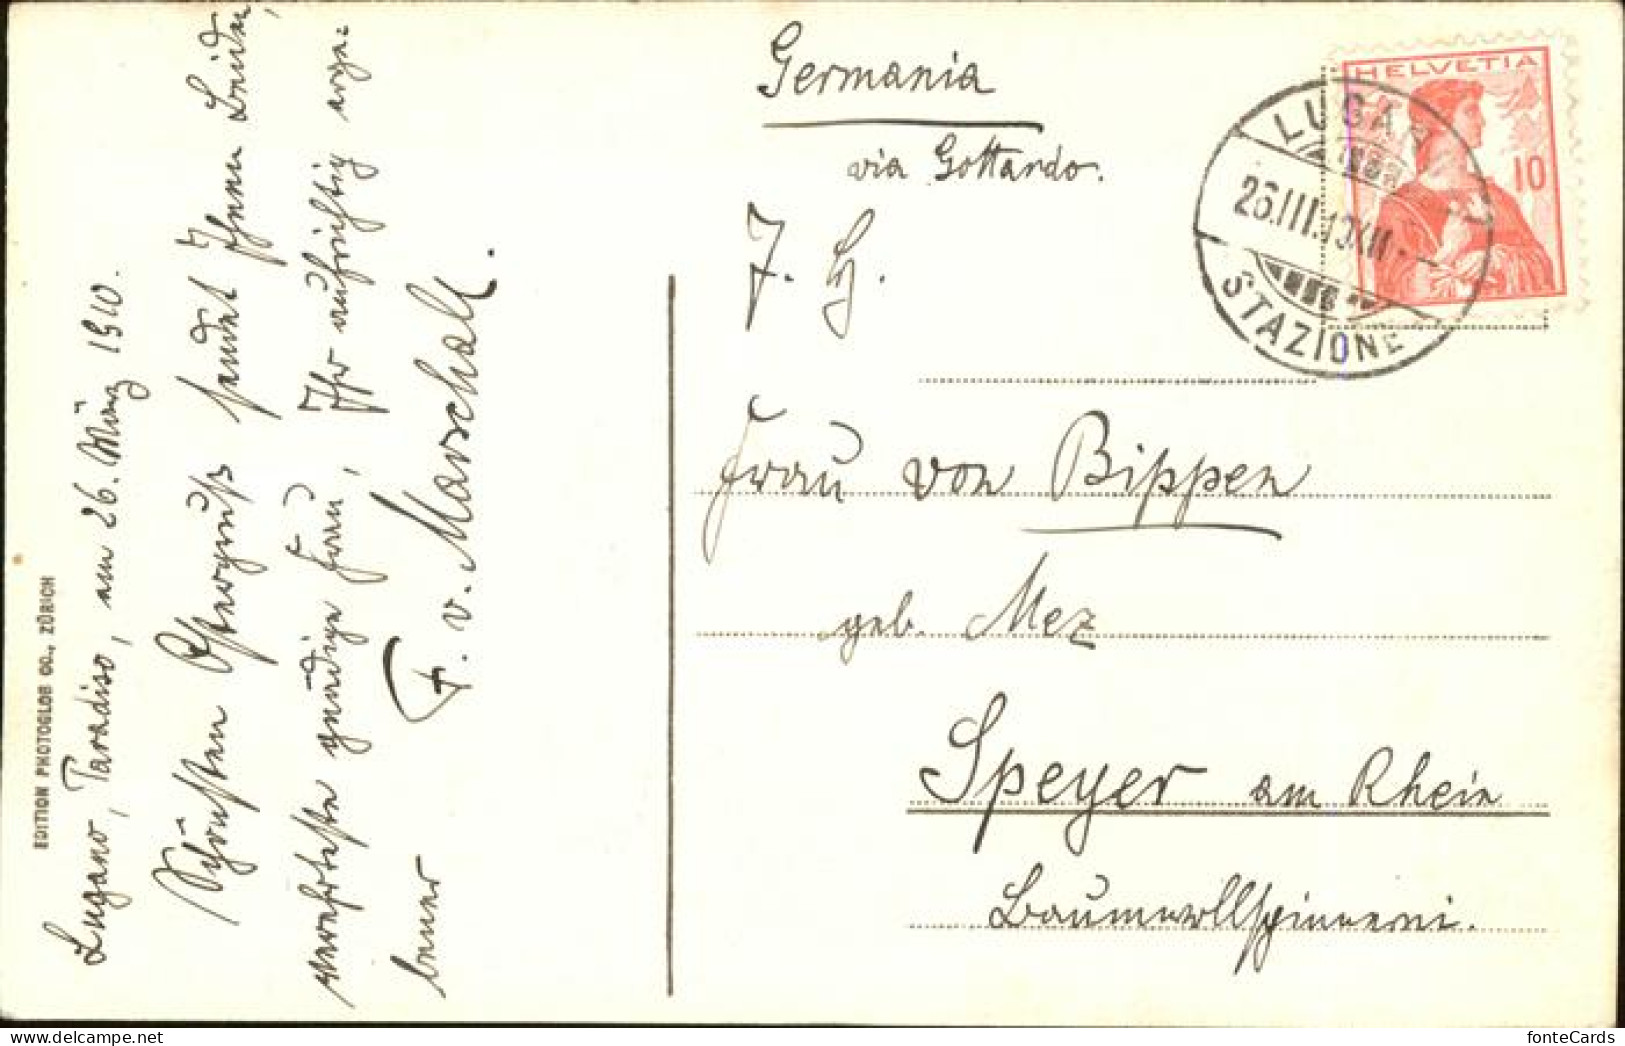 Lugano, Paradiso, am 26. März 1910.
Schönsten Ostergruß sendet Ihnen Beiden,
verehrteste gnädige Frau, Ihr aufrichtig erge-
bener
F. v. Marschall.
EDITION PHOTOGLOB CO., ZÜRICH
Germania
via Gottardo.
J. H.
Frau von Bippen
geb. Mez
Speyer am Rhein
Baumwollspinnerei.
HELVETIA
10
LUGANO
26.III.10.XII
STAZIONE
fonteCards